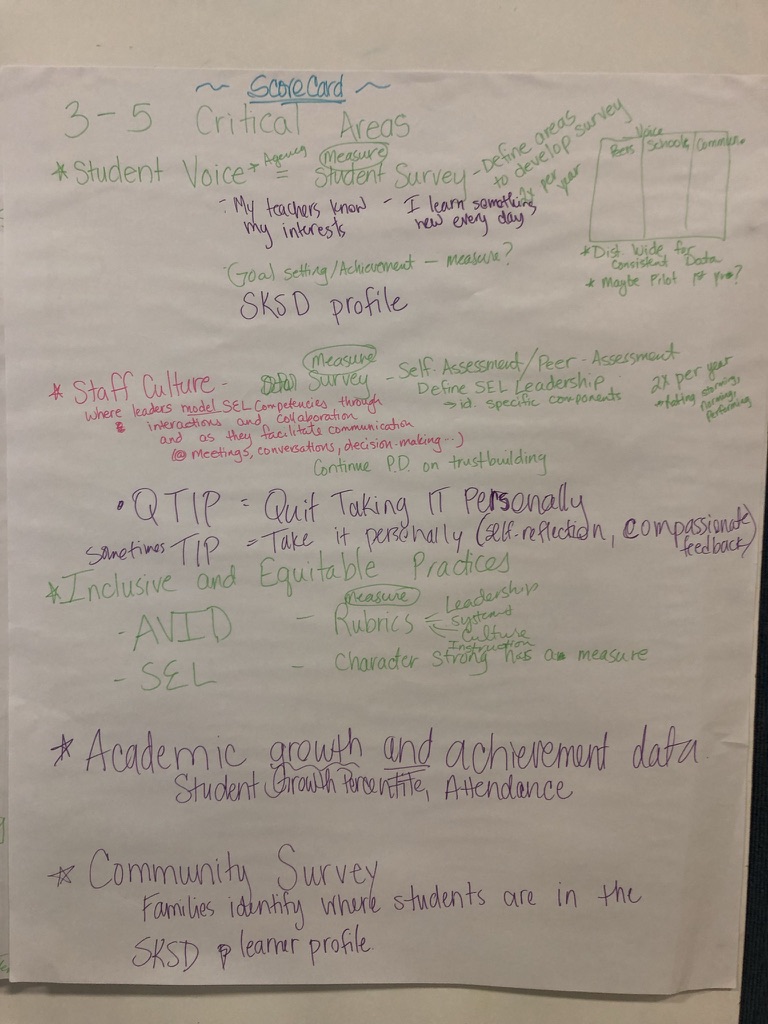 ~ Score Card ~
3-5 Critical Areas
* Student Voice + Agency = Measure Student Survey - Define areas to develop survey
2x per year
- My teachers know my interests - I learn something new every day
Goal setting/Achievement - measure?
SKSD profile
Voice
Peers Schools Commun.
* Dist. Wide for Consistent Data
* Maybe Pilot 1st yr?
* Staff Culture - Measure Survey - Self-Assessment/Peer-Assessment
Define SEL Leadership
→ id. specific components
2X per year
norming,
performing
where leaders model SEL Competencies through
interactions and collaboration
and as they facilitate communication
(@ meetings, conversations, decision-making...)
Continue P.D. on trustbuilding
• QTIP = Quit Taking IT Personally
Sometimes TIP = Take it personally (self-reflection, compassionate feedback)
* Inclusive and Equitable Practices
Measure
- AVID - Rubrics = Leadership
Systems
Culture
Instruction
- SEL - Character Strong has a measure
* Academic growth and achievement data
Student Growth Percentile, Attendance
* Community Survey
Families identify where students are in the
SKSD learner profile.